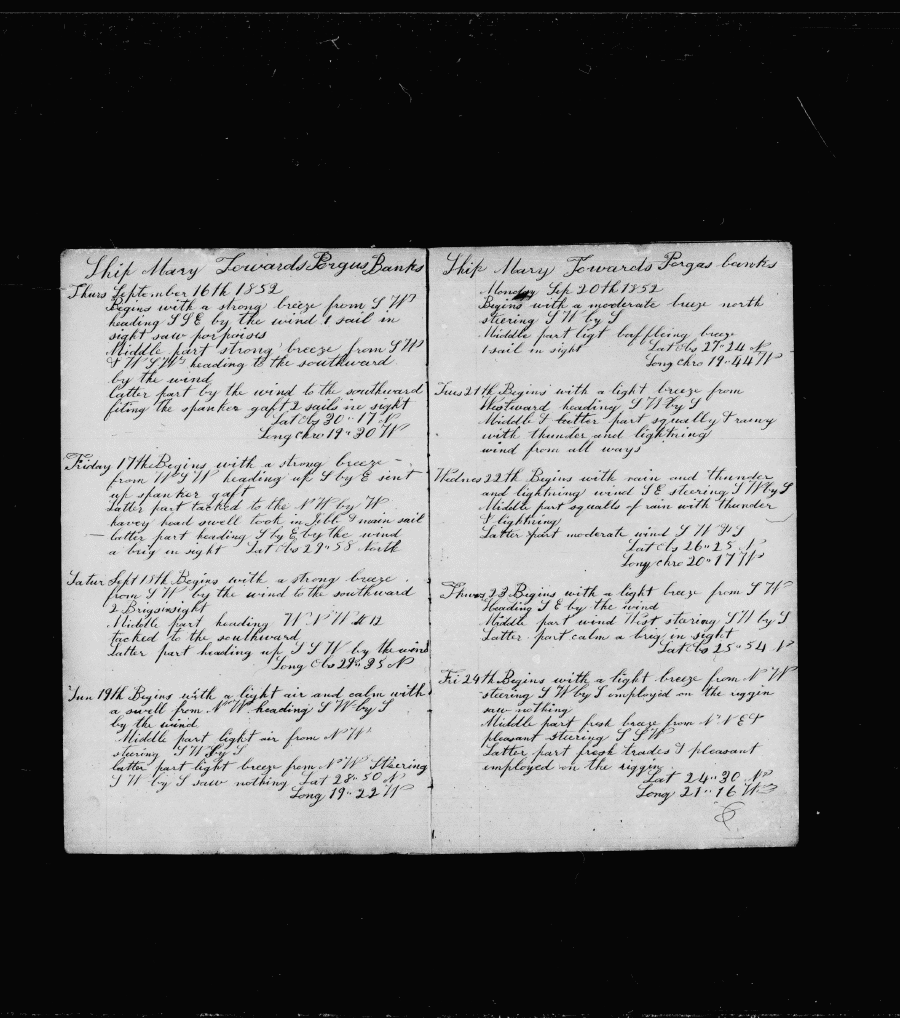 Ship Mary Towards Pergus Banks
Thurs September 16th 1852
Begins with a strong breeze from S W
heading S S E by the wind 1 sail in
sight saw porpoises
Middle part strong breeze from S W
& W S W heading to the southward
by the wind
latter part by the wind to the southward
fiting the spanker gaft 2 sails in sight
Lat Obs 30" 17 N
Long chro 19" 30 W
Friday 17the Begins with a strong breeze
from W S W heading up S by E sent
up spanker gaft
Latter part tacked to the N W by W
havey head swell took in Jebb & main sail
latter part heading S by E by the wind
a brig in sight Lat Obs 29" 58 North
Satur Sept 18th Begins with a strong breeze
from S W by the wind to the southward
2 Brigs in sight
Middle part heading W N W at 12
tacked to the southward
Latter part heading up S S W by the wind
Long Obs 29" 25 N
Sun 19th Begins with a light air and calm with
a swell from N W heading S W by S
by the wind
Middle part light air from N W
steering S W by S
latter part light breeze from N W Steering
S W by S saw nothing Lat 28" 50 N
Long 19" 22 W
Ship Mary Towards Pergas banks
Monday Sep 20th 1852
Begins with a moderate breeze north
steering S W by S
Middle part ligt baffleing breeze
1 sail in sight Lat Obs 27" 24 N
Long chro 19" 44 W
Tues 21th Begins with a light breeze from
Westward heading S W by S
Middle & latter part squally & rainy
with thunder and lightning
wind from all ways
Wednes 22th Begins with rain and thunder
and lightning wind S E steering S W by S
Middle part squalls of rain with thunder
& lightning
Latter part moderate wind S W
Lat Obs 26" 25 N
Long chro 20" 17 W
Thurs 23 Begins with a light breeze from S W
Heading S E by the wind
Middle part wind West staring S W by S
Latter part calm a brig in sight
Lat Obs 25" 54 N
Fri 24th Begins with a light breeze from N W
steering S W by S employed on the riggin
saw nothing
Middle part fresh breaze from N N E &
pleasant steering S S W
Latter part fresh trades & pleasant
employed on the riggin
Lat 24" 30 N
Long 21" 16 W